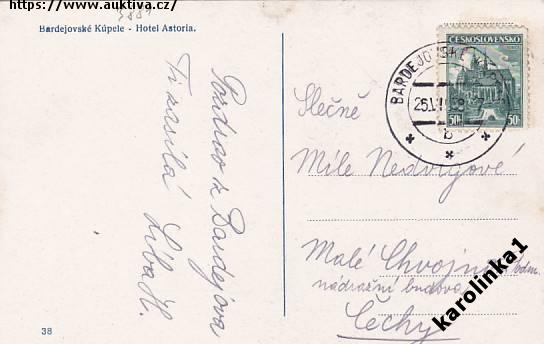 https://www.auktiva.cz/
3881
Bardejovské Kúpele - Hotel Astoria.
Pozdrav z Bardejova
Ti zasílá
Líba H.
38
ČESKOSLOVENSKO
50h 50h
BARDEJOVSKÉ
b
Slečně
Míle Nedvigové
Malé Chvojno
nádražní budova
Čechy
karolinka1